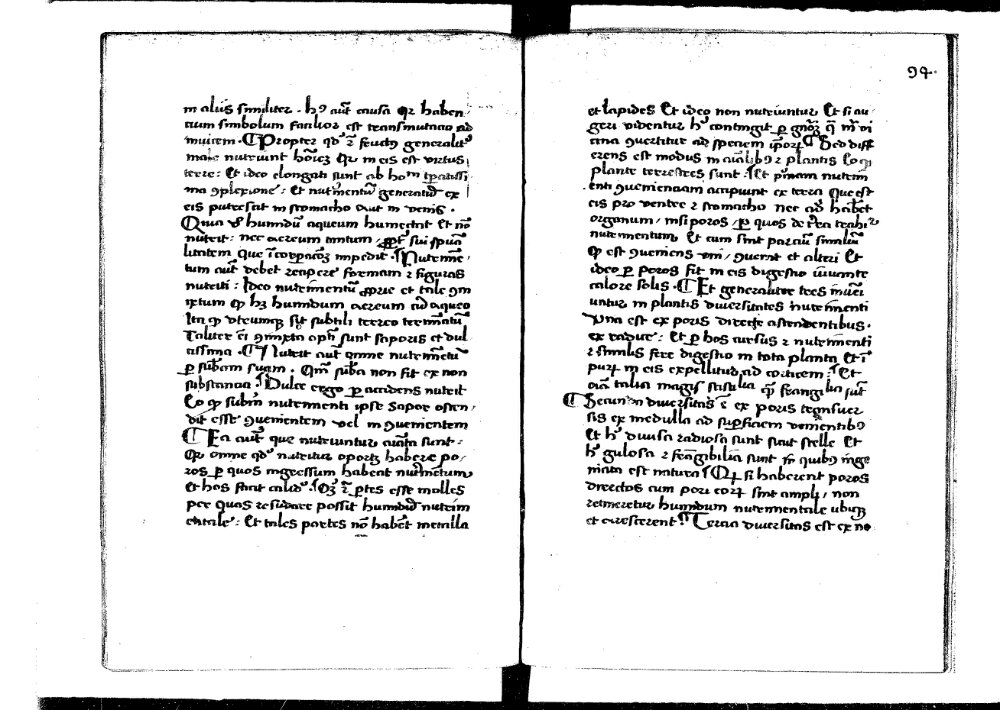 in aliis similiter. hꝰ aut̄ causa qꝛ haben
cium simbolum facilior est transmutacio ad
inuicem. ¶ Propter qd̓ ⁊ feuctꝰ generalit̓
male nutriunt hōīēs qꝛ in eis est virtus
terre: Et ideo elongati sunt ab ho
ma ꝯplexione: Et nut̓mentū generatū ex
eis putrescit in stomacho aut in venis.
Quia v̓o humidū aqueum humectat et nō
nutrit: nec aereum tantum,
litatem que impedit. Nutrimē
tum aut̄ debet recipere formam ⁊ figuras
nutriti: Ideo nutrimentū ꝓprie et tale ꝯm
ixtum ꝙ hꝫ humidum aereum ad aqueo
Ita ꝙ vtcumqꝫ sit subtili terreo terminatū
Taliter ei ꝯmixta sunt saporis et dul
cissima. ¶ Nutrit aut̄ omne nutrimētū
ꝑ sub̄am suam. Qm̄ sub̄a non fit ex non
substancia. Dulce ergo ꝑ accidens nutrit
Eo ꝙ sub̄m nutrimenti ipse sapor osten
dit esse ꝯuenientem vel inꝯuenientem
¶ Ea aut̄ que nutriuntur sunt:
Qꝛ omne qd̓ nutritur oportꝫ habere po
ros ꝑ quos ingressum habeat nut̓imētum
Et hos facit calid̓. ⁊ ꝑtes esse molles
per quas residere possit humidū nutrim
entale: Et tales partes nō habēt metalla
94.
et lapides Et ideo non nutriuntur Et si au
geri videntur hͦ contingit ꝑ
cina ꝯuertitur ad speciem ip̄oꝝ. ¶ Sed diff
erens est modus in aīalibꝰ ⁊ plantis
plante terrestres sunt: Et primam nutrim
enti ꝯuenienciam accipiunt ex terra Que est
eis pro ventre ⁊ stomacho nec ad̓ habēt
organum, nisi poros, ꝑ quos de terra trahit̓
nutrimentum Et cum sint parcium similium
ꝙ est ꝯueniens vni, ꝯuenit et alteri Et
ideo ꝑ poros fit in eis digestio iuuante
calore solis. ¶ Et generaliter tres inueni
untur in plantis diuersitates nutrimenti
Vna est ex poris directe ascendentibus.
ex radice: Et ꝑ hos cursus ⁊ nutrimenti
⁊ similis fere digestio in tota planta Et
in eis expellitur ad corticem: Et
talia magis scissilia qͣ frangilia sūt
¶ Secunda diuersitas ē ex poris transuer
sis ex medulla ad supficiem venientibꝰ
Et hͥ diuisa radiosa sunt sicut stelle Et
hͥ gulosa ⁊ frangibilia sunt in quibꝰ inge
niata est natura. Qꝛ si haberent poros
directos cum pori eoꝝ sint ampli, non
retineretur humidum nutrimentale vbiqꝫ
et arescerent. Tercia diuersitas est ex no